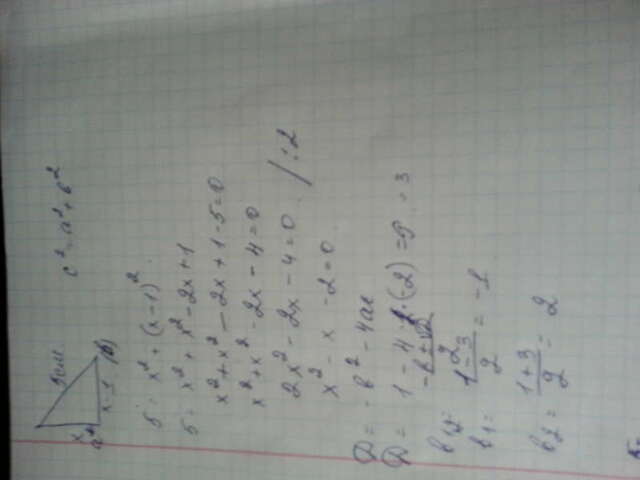 c² = a² + b²
x
x-1 (b)
5 = x² + (x-1)²
5 = x² + x² - 2x + 1
x² + x² - 2x + 1 - 5 = 0
x² + x² - 2x - 4 = 0
2x² - 2x - 4 = 0 / :2
x² - x - 2 = 0
D = b² - 4ac
D = 1 - 4 · (-2) = 9 = 3
b₁ = (1-3)/2 = -1
b₂ = (1+3)/2 = 2